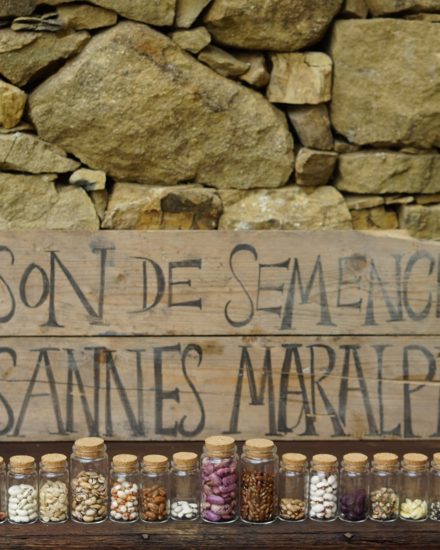 SON DE SEMENC
SANNES MARALP